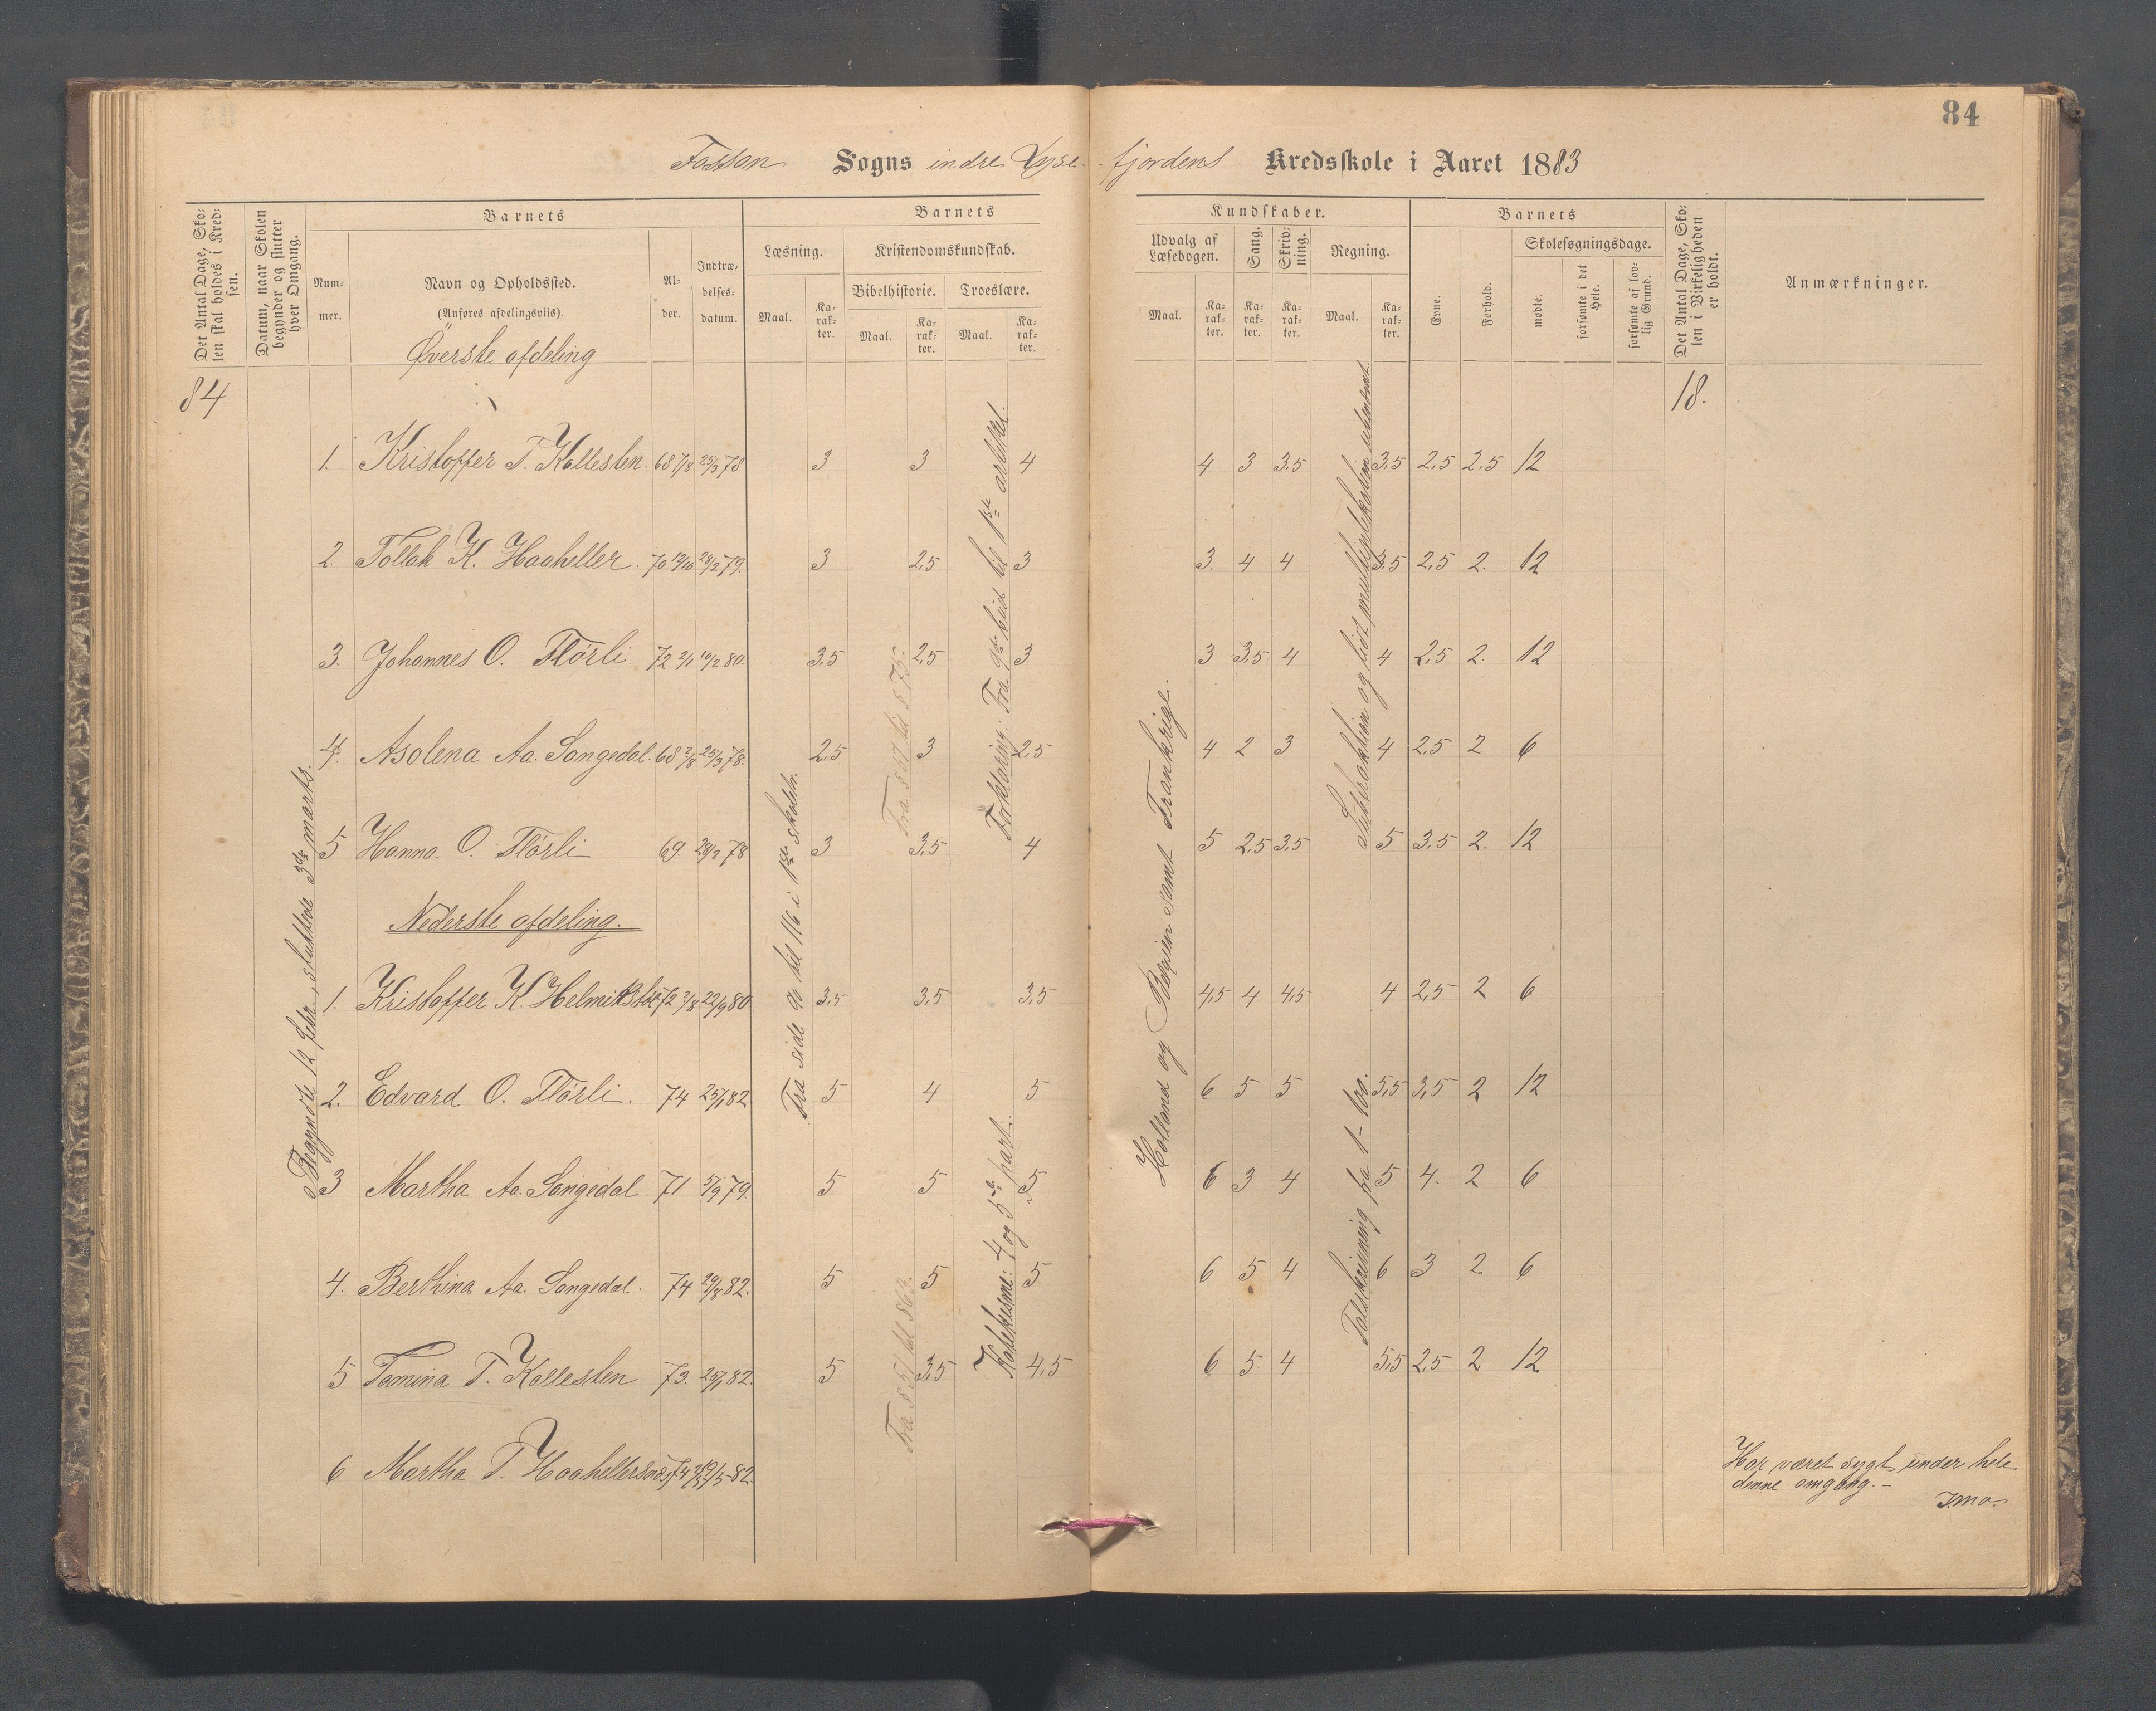 84
Fossan Sogns indre Lyse-fjordens Kredsskole i Aaret 1883
Det Antal Dage, Skolen skal holdes i Kredsen.
Datum, naar Skolen begynder og slutter hver Omgang.
Barnets
Nummer.
Navn og Opholdssted.
(Anføres afdelingsviis).
Alder.
Indtrædelsesdatum.
Barnets
Læsning.
Maal.
Karakter.
Kristendomskundskab.
Bibelhistorie.
Maal.
Karakter.
Troeslære.
Maal.
Karakter.
Kundskaber.
Udvalg af Læsebogen.
Maal.
Karakter.
Sang.
Karakter.
Skrivning.
Karakter.
Regning.
Maal.
Karakter.
Barnets
Evne.
Forhold.
Skolesøgningsdage.
mødte.
forsømte i det Hele.
forsømte af lovlig Grund.
Det Antal Dage, Skolen i Virkeligheden er holdt.
Anmærkninger.
Øverste afdeling
84
18.
Begyndte 12 febr., sluttede 3de marts.
Fra side 90 til 116 i 1ste skoletr.
Fra § 47 til § 75.
Forklaring: Fra 9de bud til 1ste artikel.
Holland og Belgien samt Frankrige.
Subtraktion og lidt multiplikation udentat.
1. Kristoffer T. Kallesten. 68 7/8 25/3 78 3 3 4 4 3 3.5 3.5 2,5 2.5 12
2. Tollak K. Haaheller. 70 19/10 28/2 79. 3 2,5 3 3. 4 4 3.5 2,5 2. 12
3. Johannes O. Flörli 72 2/1 16/2 80. 3.5 2,5 3 3 3.5 4 4 2,5 2. 12
4. Asolena Aa. Songedal. 68 2/8 25/3 78. 2,5 3 2,5 4 2 3 4 2,5 2 6
5 Hanna O. Flörli 69. 28/2 78 3 3,5 4 5 2,5 3,5 5 3.5 2. 12
Nederste afdeling.
Fra § 51 til § 63.
Katekisme: 4 og 5te part.
Talskrivning fra 1-100.
1. Kristoffer K. Helmikstöl 72 2/8 22/9 80 3,5 3,5 3,5 4,5 4 4,5 4 2,5 2 6
2. Edvard O. Flörli. 74 25/1 82. 5 4 5 6 5 5 5,5 3,5 2 12
3 Martha Aa. Songedal 71 5/9 79. 5 5 5 6 3 4 5 4. 2 6
4. Berthina Aa. Songedal. 74 29/8 82. 5 5 5 6 5 4 6 3 2 6
5 Tamina T. Kallesten 73. 25/1 82. 5 3,5 4,5 6 5 4 5,5 2,5 2 12
6 Martha T. Haaheller 82.
Har været sygt under hele
denne omgang.-